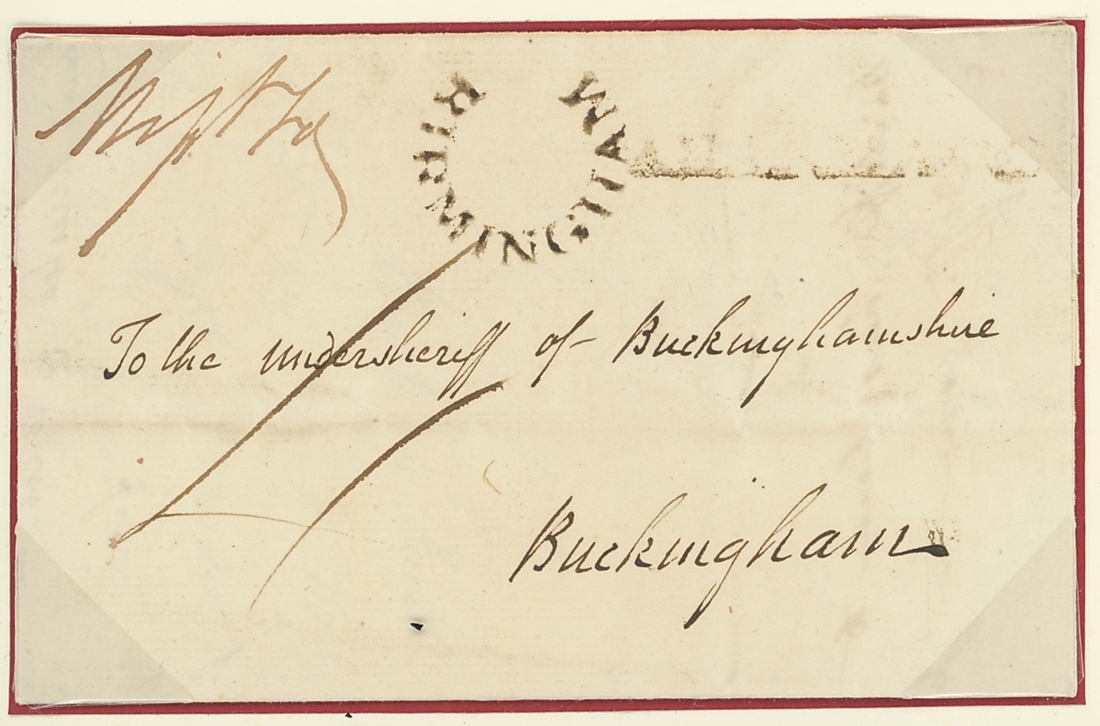 BIRMINGHAM
To the undersheriff of Buckinghamshire
Buckingham